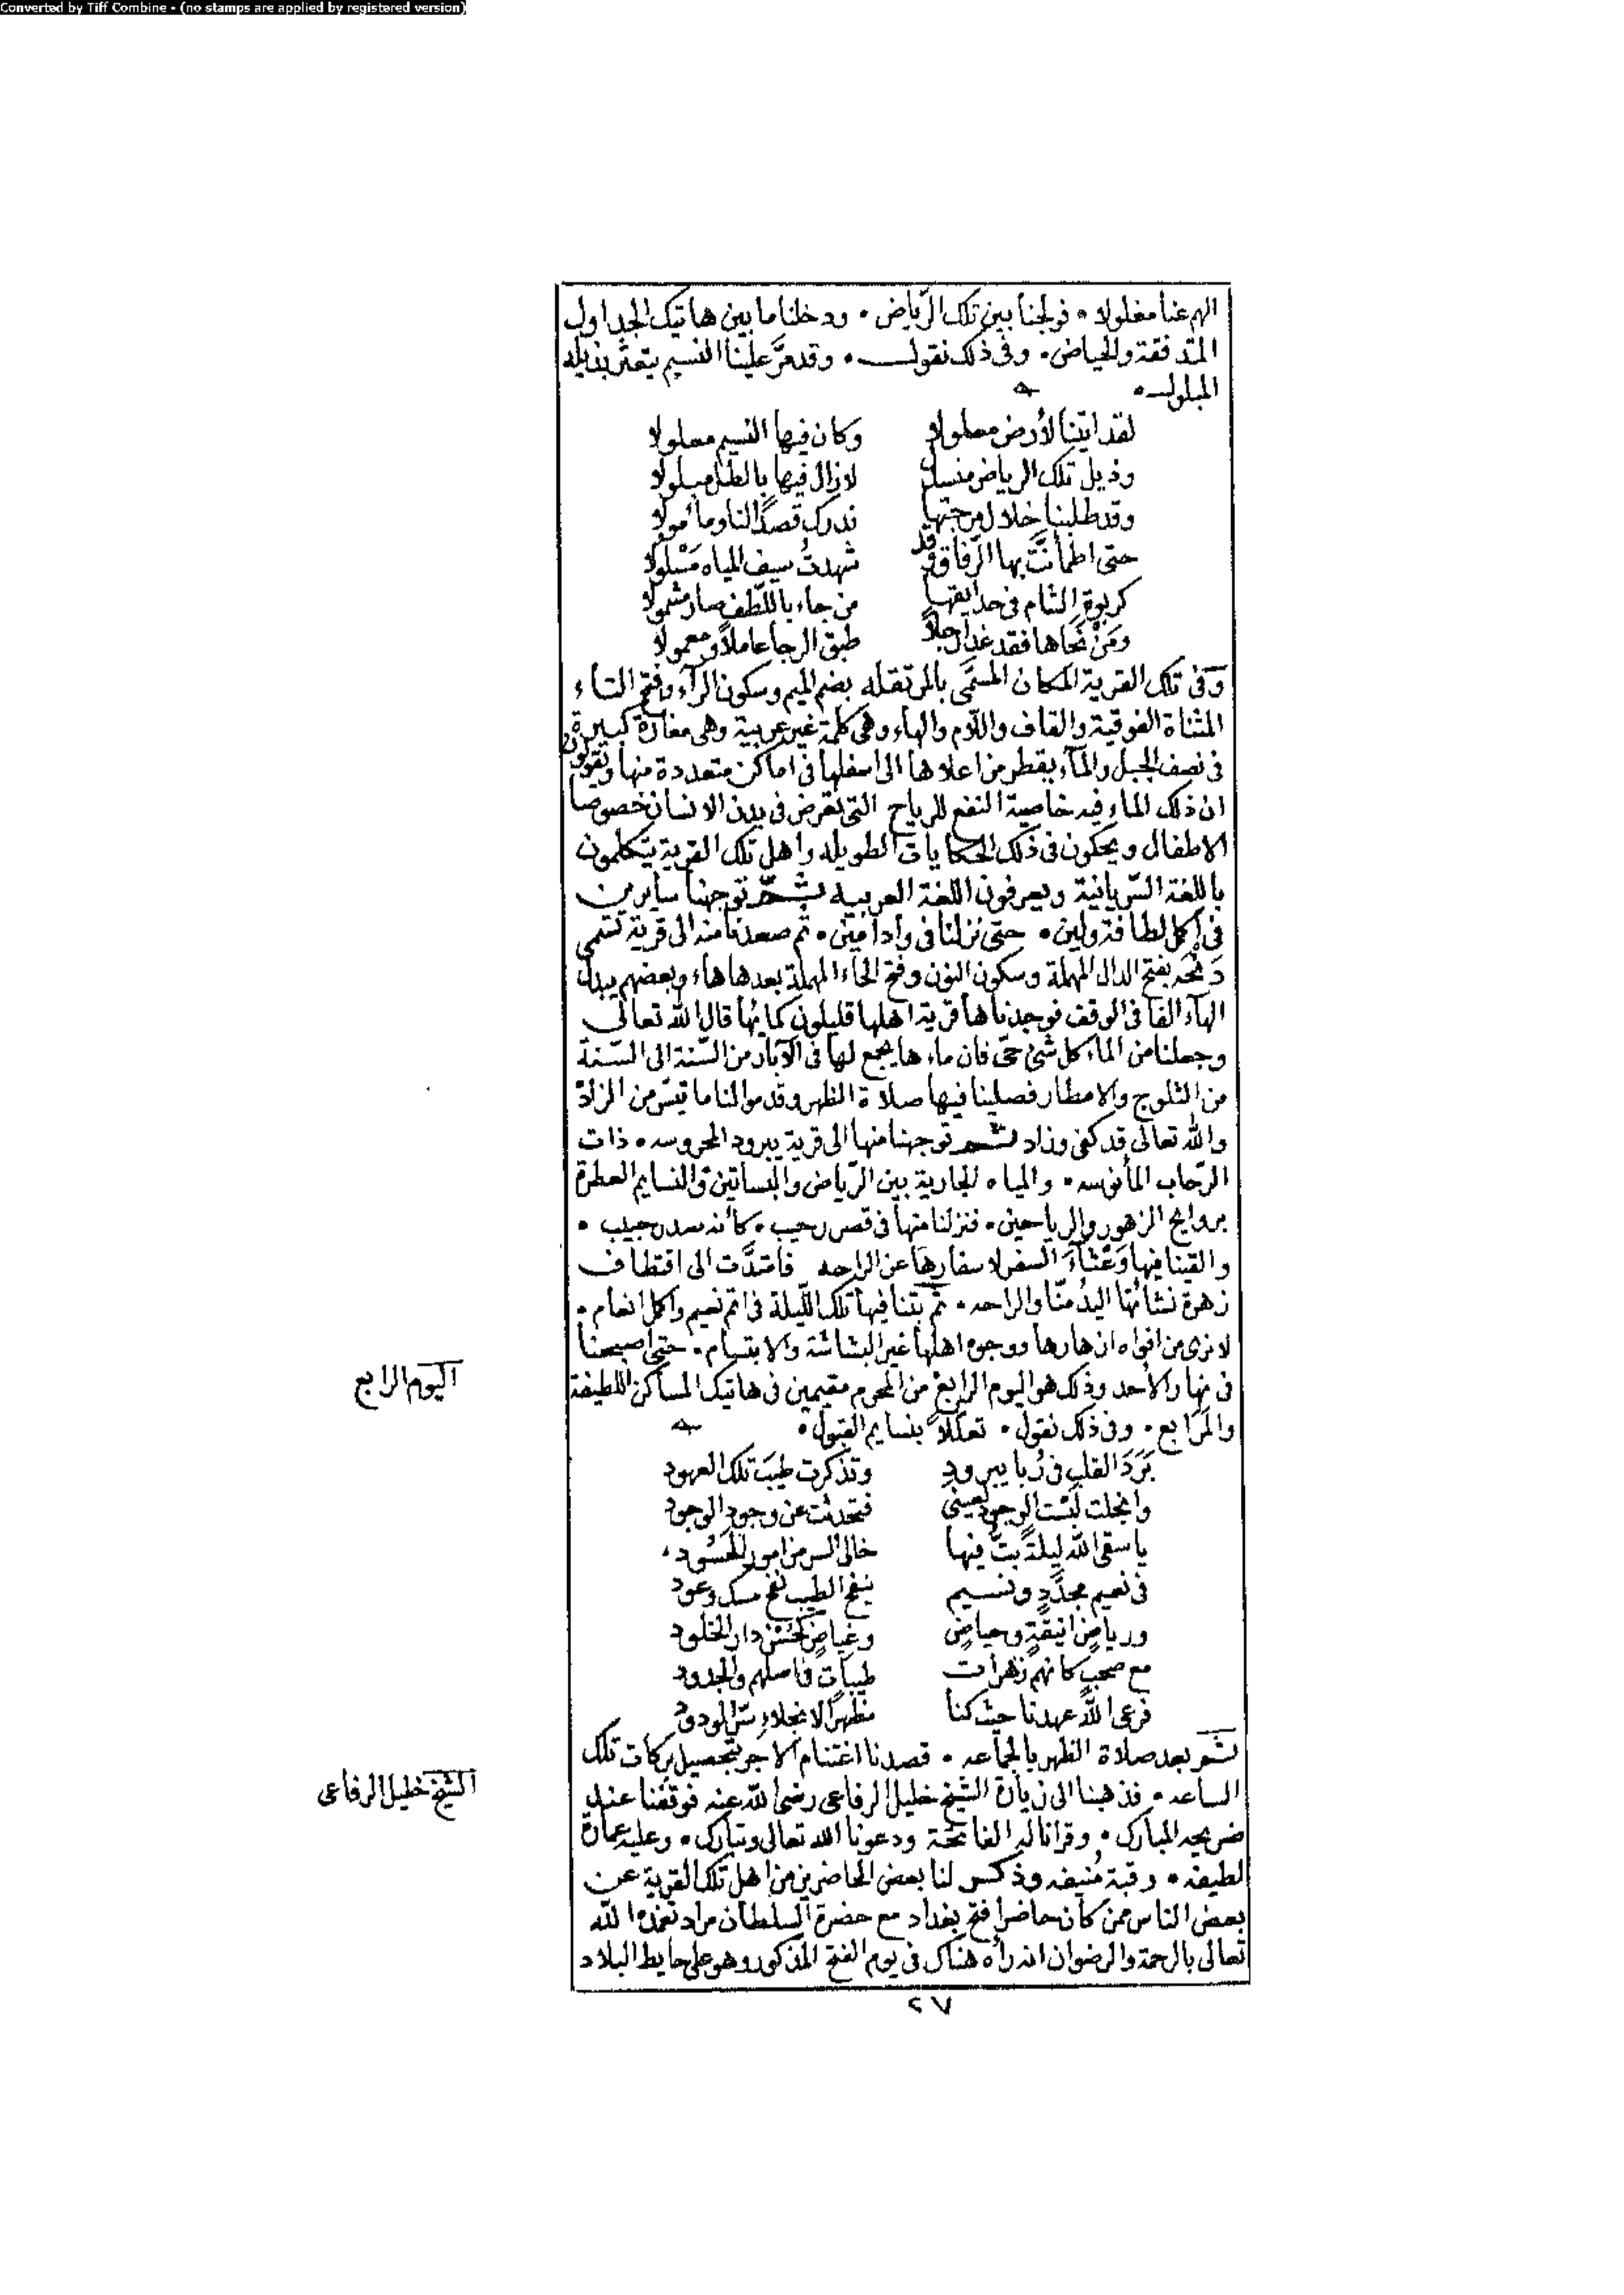 Converted by Tiff Combine - (no stamps are applied by registered version)
الهم عنا مغلولا • فولجنا بين تلك الرّياض • ودخلنا ما بين هاتيك الجداول
المتدفقة والحياض • وفى ذلك نقول • وقد مرَّ علينا النسيم يتعثر بذيله
المبلول •
لقد اتينا لأرض معلولا وكان فيها النسيم معلولا
وذيل تلك الرياض منسبل لازال فيها بالطل مبلولا
وقد طلبنا خلال مرجتها ندرك قصدًا لنا ومأمولا
حتى اطمأنَّت بها الرّفاق وقد شهدتُ سيف المياه مَسْلولا
كربوة الشام فى حدايقها من جاء باللّطف صار مشمولا
ومَنْ نَحَاها فقد غدا رجلاً طبق الرجا عاملاً ومعمولا
وفى تلك القرية المكان المسمَّى بالمرتقله بضم الميم وسكون الرآء وفتح التاء
المثناة الفوقية والقاف واللّام والهاء وهى كلمة غير عربية وهى مغارة كبيرة
فى نصف الجبل والمآء يقطر من اعلاها الى اسفلها فى اماكن متعددة منها ويقولون
ان ذلك الماء فيه خاصية النفع للرياح التى تعرض فى بدن الانسان خصوصا
الاطفال ويحكون فى ذلك الحكايات الطويله واهل تلك القرية يتكلمون
باللغة السّريانية ويعرفون اللغة العربيه ثـم توجهنا سايرين
فى اكمل لطافة ولين • حتى نزلنا فى واد امين • ثم صعدنا منه الى قرية تسمى
دَنْحَه بفتح الدال المهملة وسكون النون وفتح الحاء المهملة بعدها هاء وبعضهم يبدل
الهآء الفا فى الوقف فوجدناها قرية اهلها قليلون كمائها قال الله تعالى
وجعلنا من الماء كل شئ حىّ فان ماءها يجمع لها فى الآبار من السّنة الى السّنة
من الثلوج والامطار فصلينا فيها صلاة الظهر وقدموا لنا ما تيسّر من الزاد
والله تعالى قد كفى وزاد ثـم توجهنا منها الى قرية يبرود المحروسه • ذات
الرّحاب المأنوسه • والمياه الجارية بين الرّياض والبساتين والنسايم العطرة
بروايح الزهور والرياحين • فنزلنا منها فى قصر رحيب • كأنه صدر حبيب •
والقينا فيها وَعْثآءَ السفر لاسفارها عن الراحه فامتدَّت الى اقتطاف
زهرة نشأتها اليدُ منّا والراحه • ثم بتنا فيها تلك اللّيلة فى اتم نعيم واكمل انعام •
لا نرى من افواه ازهارها ووجوه اهلها غير البشاشة والابتسام • حتى اصبحنا
فى نهار الأحد وذلك هو اليوم الرابع من المحرم مقيمين فى هاتيك المساكن اللطيفة
اليوم الرابع
والمَرَابع • وفى ذلك نقول • تعلّلاً بنسايم القبول •
بَرَدَ القلب فى رُبا يبرود وتذكرت طيبَ تلك العهود
وانجلت لى بنت الوجود بعينى فتحدثت عن وجود الوجود
يا سقى الله ليلةً بتُّ فيها خالى السر من امور الحسود
فى نعيم مجدَّدٍ ونسيم ينفح الطيب نفح مسك وعود
ورياضٍ انيقةٍ وحياضٍ وغياضٍ كحُسْن دار الخلود
مع صحبٍ كانهم زهرات طيبات فاصلهم والجدود
فرعى اللهُ عهدنا حيث كنا مظهرًا لانجلاء سرّ الودود
ثـم بعد صلاة الظهر بالجماعه • قصدنا اغتنام الاجر بتحصيل بركات تلك
الساعه • فذهبنا الى زيارة الشيخ خليل الرفاعى رضى الله عنه فوقفنا عند
الشيخ خليل الرفاعى
ضريحه المبارك • وقرأنا له الفاتحة ودعونا الله تعالى وتبارك • وعليه عمارة
لطيفه • وقبة مُنيفه وذكر لنا بعض الحاضرين من اهل تلك القرية عن
بعض الناس ممن كان حاضرا فتح بغداد مع حضرة السلطان مراد تغمده الله
تعالى بالرحمة والرضوان انه رأه هناك فى يوم الفتح المذكور وهو على حايط البلاد
٢٧